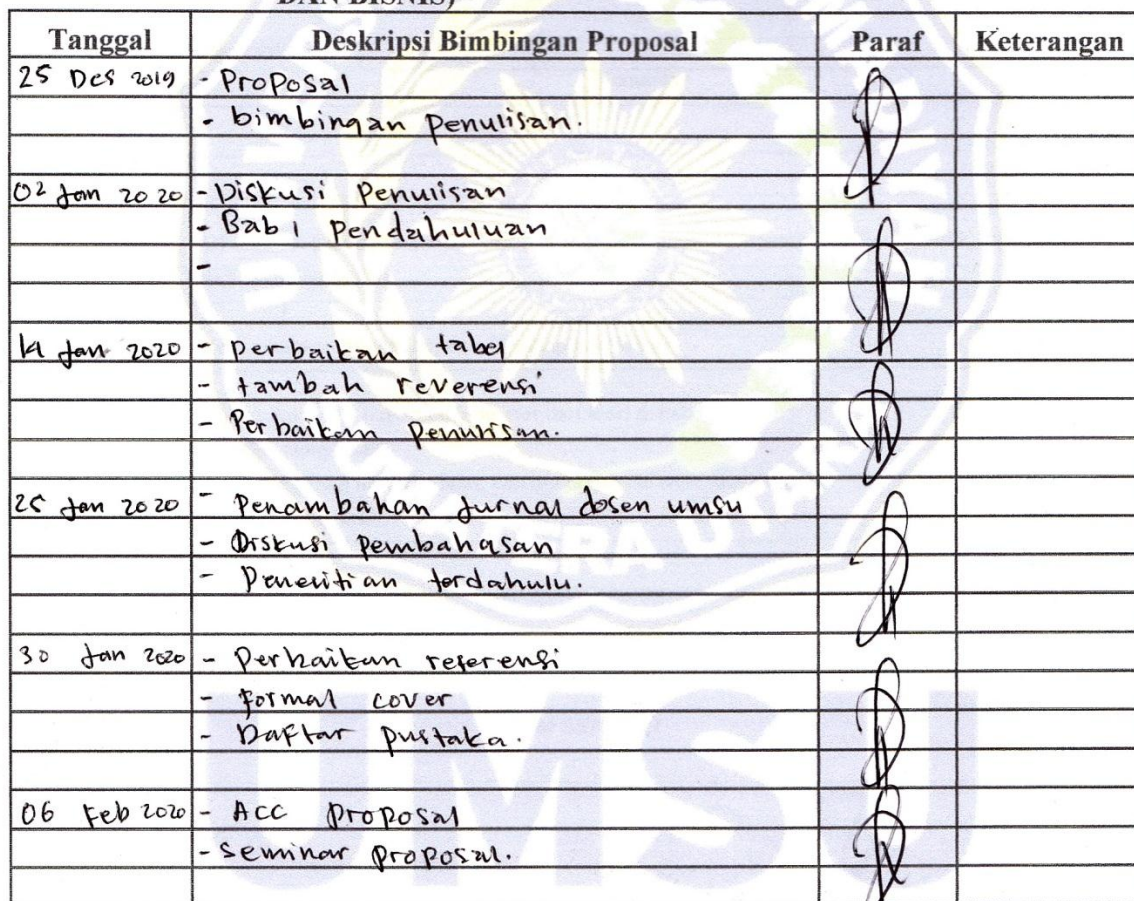 DAN BISNIS)
Tanggal Deskripsi Bimbingan Proposal Paraf Keterangan
25 Des 2019 - Proposal
- bimbingan penulisan.
02 Jan 2020 - Diskusi Penulisan
- Bab 1 pendahuluan
-
14 Jan 2020 - perbaikan tabel
- tambah reverensi
- Perbaikan penulisan.
25 Jan 2020 - Penambahan Jurnal dosen umsu
- Diskusi pembahasan
- Penelitian terdahulu.
30 Jan 2020 - Perbaikan referensi
- formal cover
- Daftar pustaka.
06 Feb 2020 - ACC proposal
- seminar proposal.
UMSU